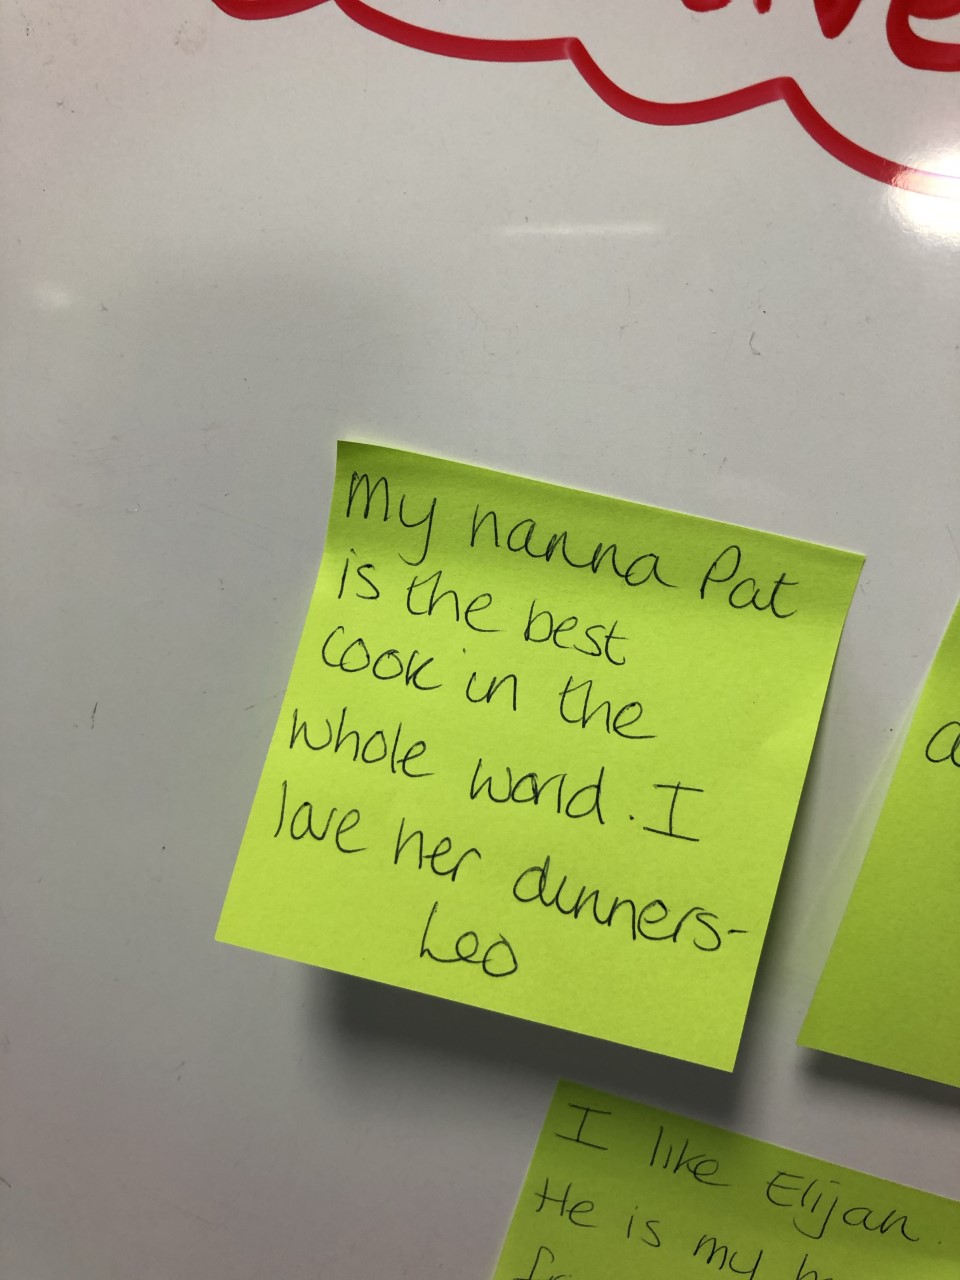 My nanna Pat
is the best
cook in the
whole world. I
love her dinners-
Leo
I like Elijah.
He is my